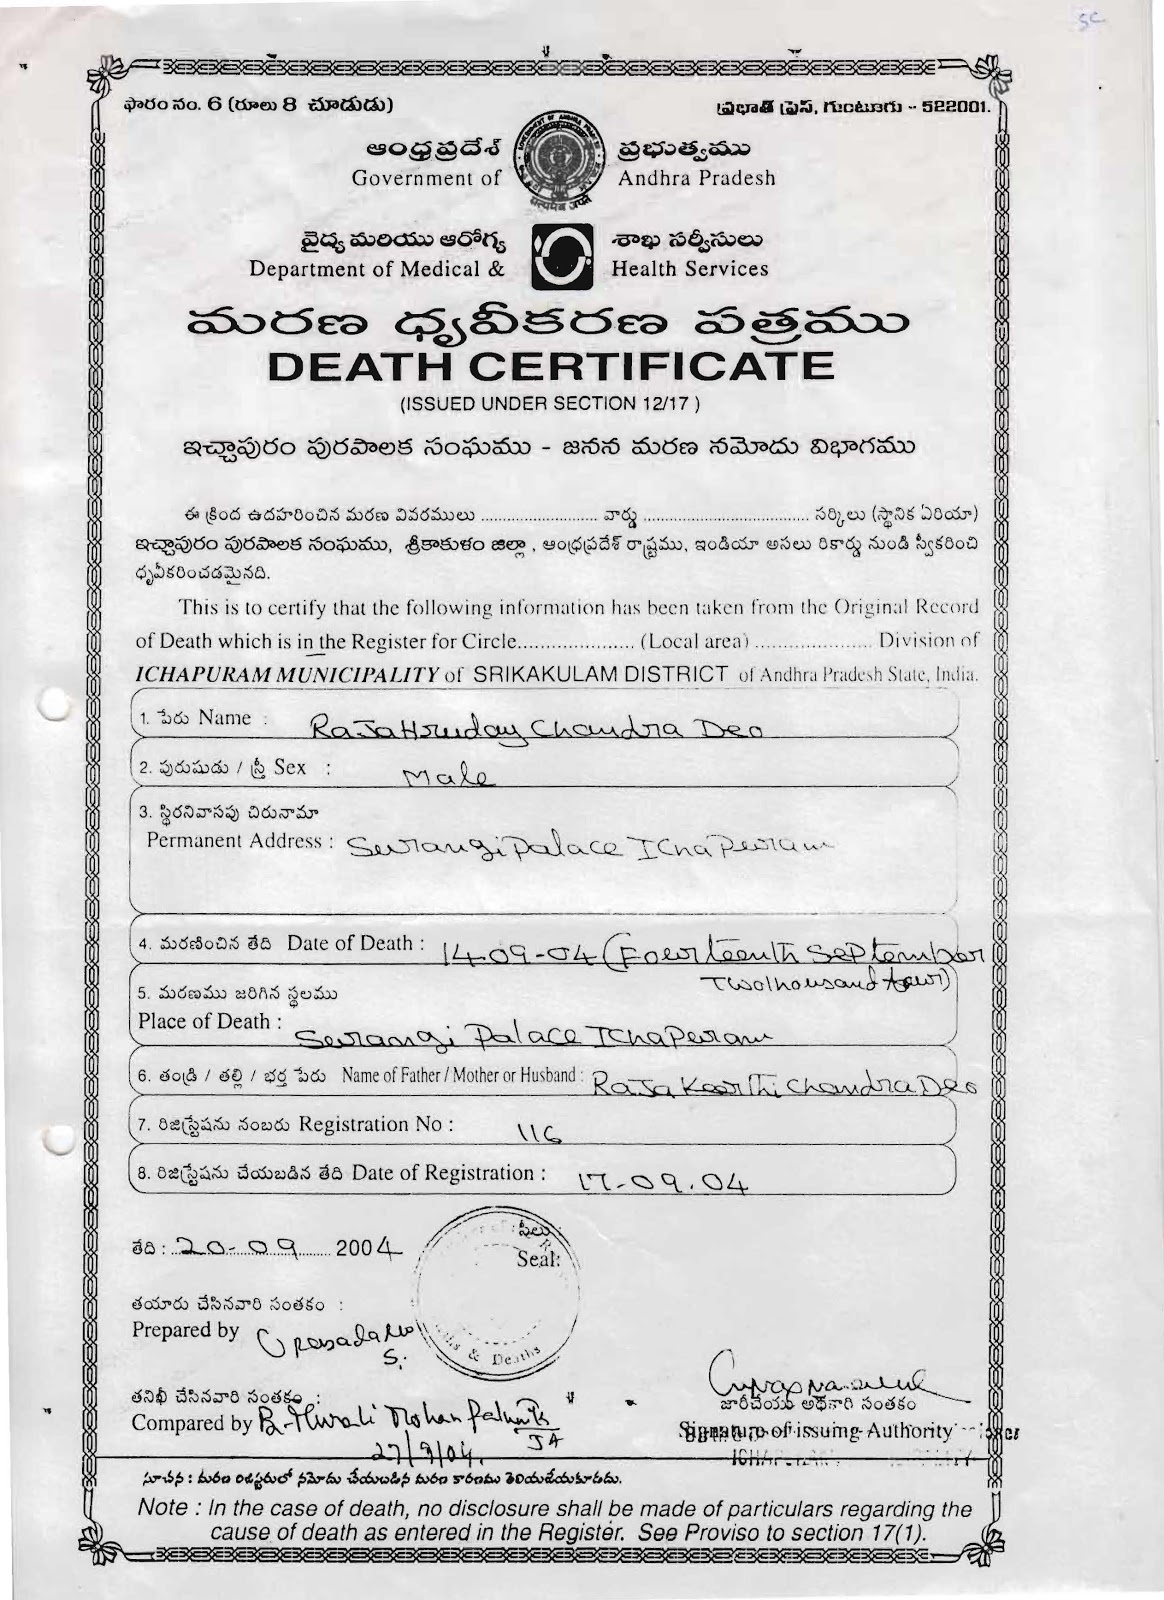 sc
ఫారం నం. 6 (రూలు 8 చూడుడు) ప్రభాత్ ప్రెస్, గుంటూరు - 522001.
ఆంధ్రప్రదేశ్ ప్రభుత్వము
Government of Andhra Pradesh
వైద్య మరియు ఆరోగ్య శాఖ సర్వీసులు
Department of Medical & Health Services
మరణ ధృవీకరణ పత్రము
DEATH CERTIFICATE
(ISSUED UNDER SECTION 12/17 )
ఇచ్ఛాపురం పురపాలక సంఘము - జనన మరణ నమోదు విభాగము
ఈ క్రింద ఉదహరించిన మరణ వివరములు ........................... వార్డు ...................................... సర్కిలు (స్థానిక ఏరియా)
ఇచ్ఛాపురం పురపాలక సంఘము, శ్రీకాకుళం జిల్లా, ఆంధ్రప్రదేశ్ రాష్ట్రము, ఇండియా అసలు రికార్డు నుండి స్వీకరించి
ధృవీకరించడమైనది.
This is to certify that the following information has been taken from the Original Record
of Death which is in the Register for Circle..................... (Local area) ..................... Division of
ICHAPURAM MUNICIPALITY of SRIKAKULAM DISTRICT of Andhra Pradesh State, India.
1. పేరు Name : Raja Hruday Chandra Deo
2. పురుషుడు / స్త్రీ Sex : Male
3. స్థిరనివాసపు చిరునామా
Permanent Address : Surangi Palace Ichapuram
4. మరణించిన తేది Date of Death : 14-09-04 (Fourteenth September
Twothousand four)
5. మరణము జరిగిన స్థలము
Place of Death : Surangi Palace Ichapuram
6. తండ్రి / తల్లి / భర్త పేరు Name of Father / Mother or Husband : Raja Keerthi Chandra Deo
7. రిజిస్ట్రేషను నంబరు Registration No : 116
8. రిజిస్ట్రేషను చేయబడిన తేది Date of Registration : 17-09.04
తేది : 20-09 2004
సీలు :
Seal:
& Deaths
తయారు చేసినవారి సంతకం :
Prepared by
తనిఖీ చేసినవారి సంతకం :
Compared by B. Murali Mohan Patnaik
JA
27/9/04.
జారీచేయు అధికారి సంతకం
Signature of issuing Authority
సూచన : మరణ రిజిస్టరులో నమోదు చేయబడిన మరణ కారణము తెలియజేయకూడదు.
Note : In the case of death, no disclosure shall be made of particulars regarding the
cause of death as entered in the Register. See Proviso to section 17(1).